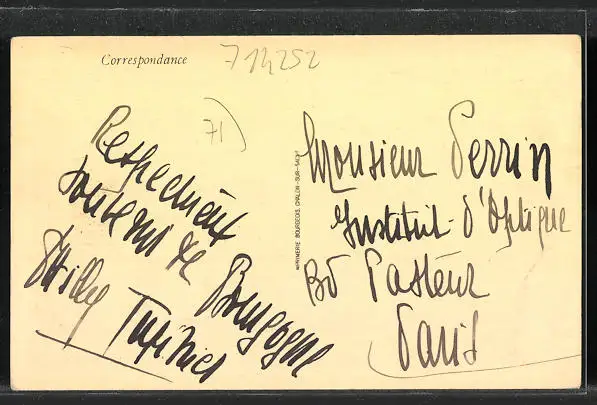 Correspondance
714252
71
Respectueux
souvenir de
Bourgogne
Willy
IMPRIMERIE BOURGEOIS, CHALON-SUR-SAÔNE
Monsieur Perrin
Institut d'Optique
Bd Pasteur
Paris